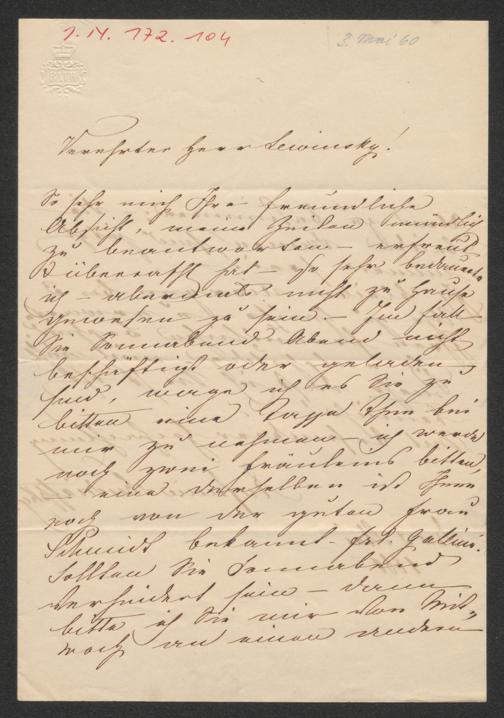 1. IV. 172. 104
3. Mai 60
BATH
Verehrter Herr Lewinsky!
So sehr mich Ihre freundliche
Absicht, meine Zeilen mündlich
zu beantworten – erfreut
& überrascht hat – so sehr bedauerte
ich – abermals nicht zu Hause
gewesen zu sein. – Im Falle
Sie Sonnabend Abend nicht
beschäftigt oder geladen
sind, wage ich es Sie zu
bitten eine Tasse Thee bei
mir zu nehmen – ich werde
noch zwei Fräuleins bitten,
eine derselben ist Ihnen
noch von der guten Frau
Schmidt bekannt – Frl. Gallini.
Sollten Sie Sonnabend
verhindert sein – dann
bitte ich Sie mir von Mitt-
woch an einen andern